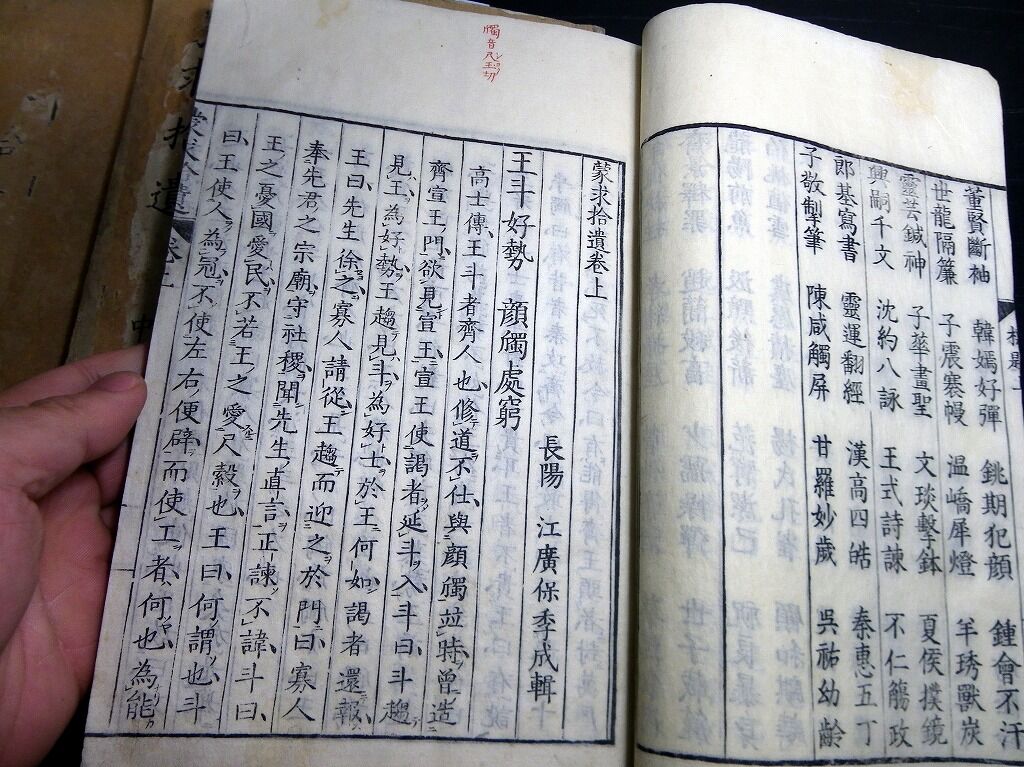 董賢斷袖 韓嫣好彈 銚期犯顏 鍾會不汗
世龍隔簾 子震褰幔 温嶠犀燈 羊琇獸炭
靈芸鍼神 子華畫聖 文琰擊鉢 夏侯撲鏡
興嗣千文 沈約八詠 王式詩諫 不仁觴政
郎基寫書 靈運翻經 漢高四皓 秦惠五丁
子敬製筆 陳咸觸屏 甘羅妙歲 吳祐幼齡
蒙求拾遺卷上
長陽 江廣保季成輯
王斗好勢 顏觸處窮
高士傳王斗者齊人也修道不仕與顏觸並時曾造
齊宣王門欲見宣王宣王使謁者延斗入斗曰斗趨
見王為好勢王趨見斗為好士於王何如謁者還報
王曰先生徐之寡人請從王趨而迎之於門曰寡人
奉先君之宗廟守社稷聞先生直言正諫不諱斗曰
王之憂國愛民不若王之愛尺縠也王曰何謂也斗
曰王使人為冠不使左右便辟而使工者何也為能
觸音尺玉切